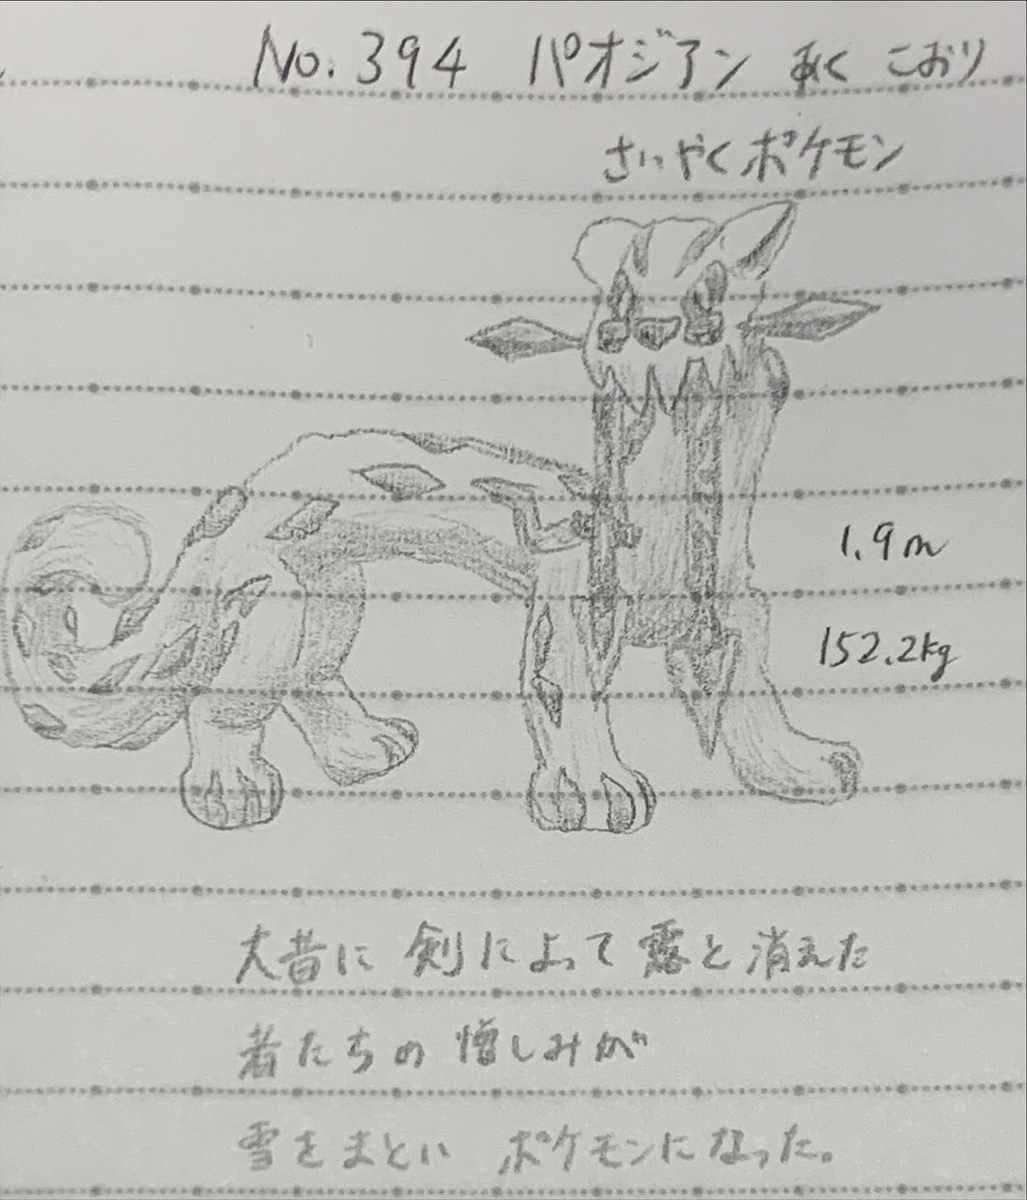 No.394 パオジアン あく こおり
さいやくポケモン
1.9m
152.2kg
大昔に 剣によって 露と消えた
者たちの 憎しみが
雪をまとい ポケモンになった。